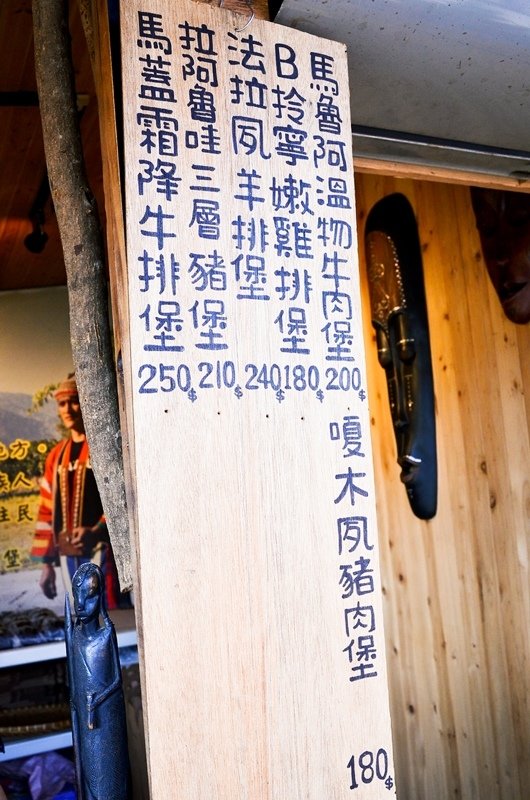 馬魯阿溫物牛肉堡
200$
B拎寧嫩雞排堡
180$
法拉夙羊排堡
240$
拉阿魯哇三層豬堡
210$
馬蓋霜降牛排堡
250$
嗄木夙豬肉堡
180$
地方。
族人
住民
堡